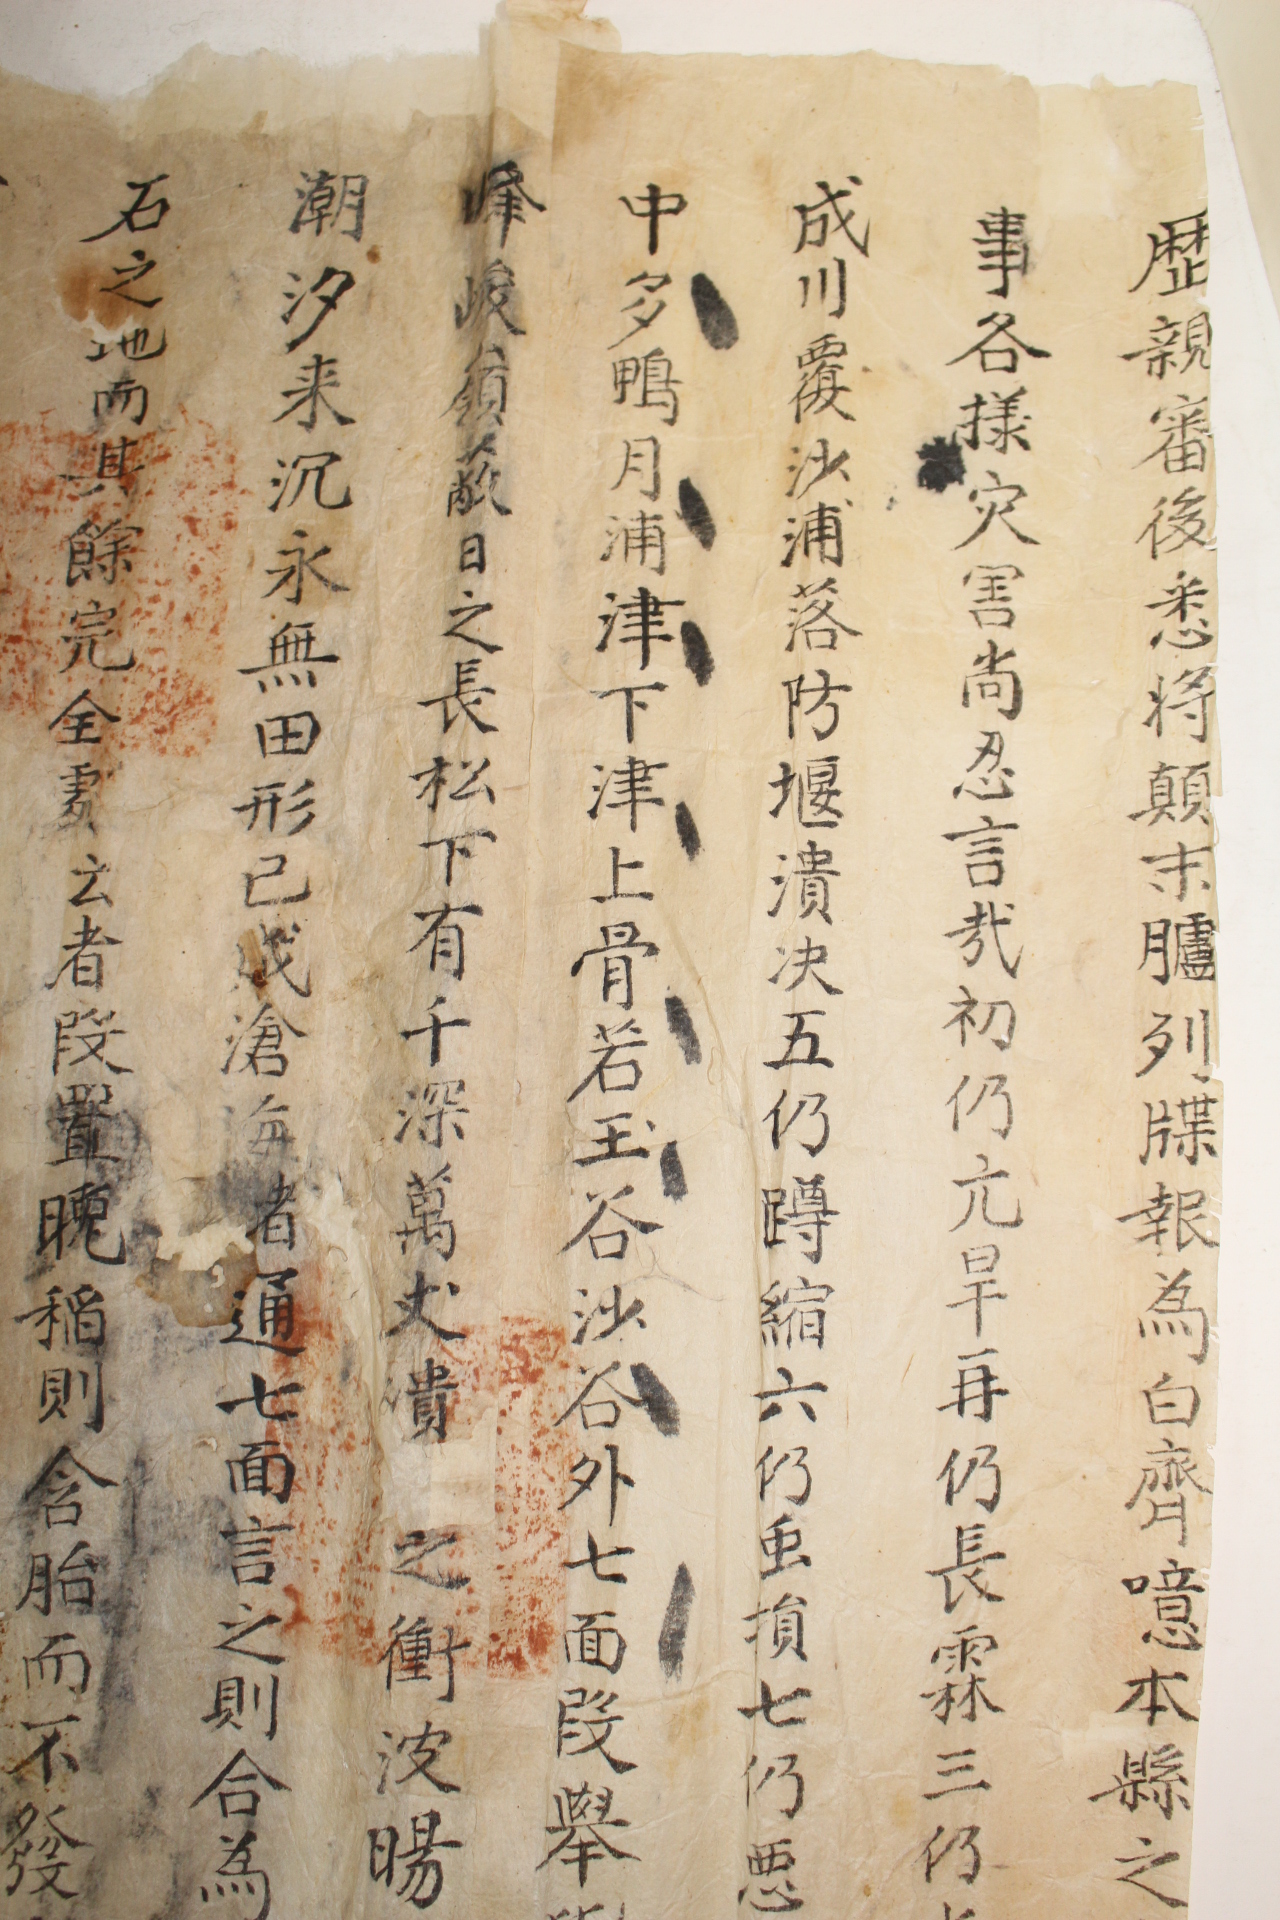 歴親審後悉將顛末臚列牒報為白齊噫本縣之
事各樣灾害尚忍言㢤初仍亢旱再仍長霖三仍
成川覆沙浦落防堰潰决五仍蹲縮六仍虫損七仍悪
中多鴨月浦津下津上骨若玉谷沙谷外七面段舉
峰峻嶺蔽日之長松下有千深萬丈潰之衝波暘
潮汐来沉永無田形已成滄海者通七面言之則合為
石之地而其餘完全䖏云者段置晩稲則含胎而不發